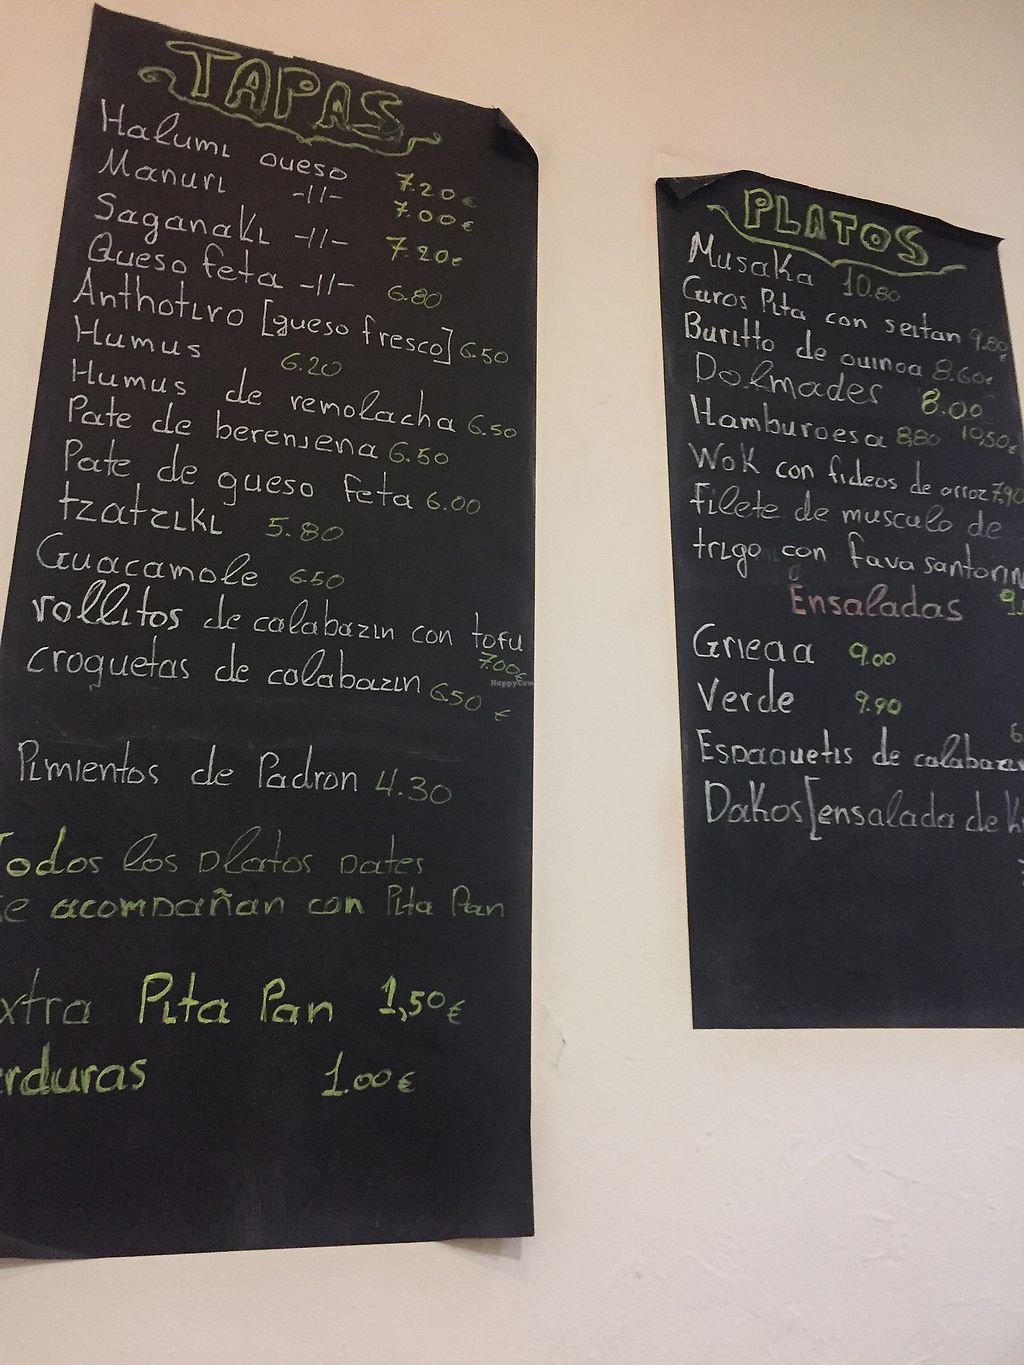 TAPAS
Halumi queso 7.20€
Manuri -//- 7.00€
Saganaki -//- 7.20€
Queso feta -//- 6.80
Anthotiro [queso fresco] 6.50
Humus 6.20
Humus de remolacha 6.50
Pate de berenjena 6.50
Pate de queso feta 6.00
tzatziki 5.80
Guacamole 6.50
rollitos de calabazin con tofu
7.00€
croquetas de calabazin 6.50€
HappyCow
Pimientos de Padron 4.30
Todos los platos pates
se acompañan con Pita Pan
xtra Pita Pan 1,50€
erduras 1.00€
PLATOS
Musaka 10.80
Guros Pita con seitan 9.80€
Buritto de quinoa 8.60€
Dolmades 8.00
Hamburgesa 8,80 10,50€
Wok con fideos de arroz 7,90
filete de musculo de
trigo con fava santorin
Ensaladas 9
Griega 9.00
Verde 9.90
6
Espaguetis de calabazin
Dakos [ensalada de K